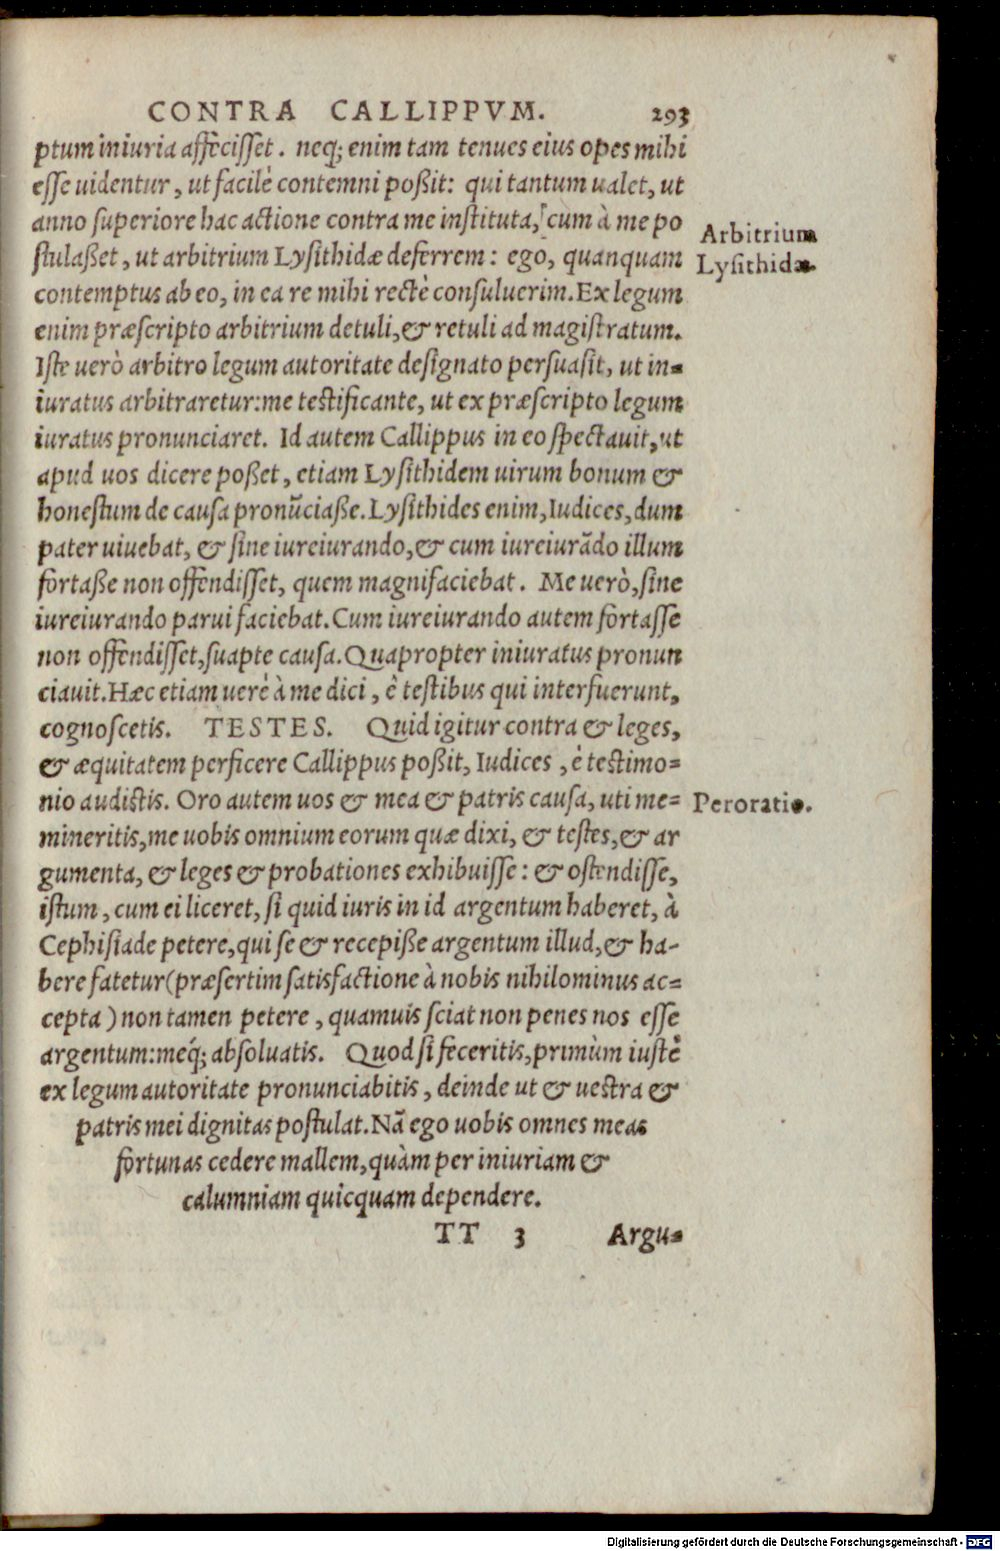 CONTRA CALLIPPVM. 293
ptum iniuria affecisset. neq; enim tam tenues eius opes mihi
esse uidentur, ut facilè contemni poßit: qui tantum ualet, ut
anno superiore hac actione contra me instituta, cum à me po
stulaßet, ut arbitrium Lysithidæ deferrem: ego, quanquam
contemptus ab eo, in ea re mihi rectè consuluerim. Ex legum
enim præscripto arbitrium detuli, & retuli ad magistratum.
Iste uerò arbitro legum autoritate designato persuasit, ut in=
iuratus arbitraretur: me testificante, ut ex præscripto legum
iuratus pronunciaret. Id autem Callippus in eo spectauit, ut
apud uos dicere poßet, etiam Lysithidem uirum bonum &
honestum de causa pronũciaße. Lysithides enim, Iudices, dum
pater uiuebat, & sine iureiurando, & cum iureiurãdo illum
fortaße non offendisset, quem magnifaciebat. Me uerò, sine
iureiurando parui faciebat. Cum iureiurando autem fortasse
non offendisset, suapte causa. Quapropter iniuratus pronun
ciauit. Hæc etiam uerè à me dici, è testibus qui interfuerunt,
cognoscetis. TESTES. Quid igitur contra & leges,
& æquitatem perficere Callippus poßit, Iudices, è testimo=
nio audistis. Oro autem uos & mea & patris causa, uti me=
mineritis, me uobis omnium eorum quæ dixi, & testes, & ar
gumenta, & leges & probationes exhibuisse: & ostendisse,
istum, cum ei liceret, si quid iuris in id argentum haberet, à
Cephisiade petere, qui se & recepiße argentum illud, & ha-
bere fatetur (præsertim satisfactione à nobis nihilominus ac=
cepta) non tamen petere, quamuis sciat non penes nos esse
argentum: meq́; absoluatis. Quod si feceritis, primùm iustè
ex legum autoritate pronunciabitis, deinde ut & uestra &
patris mei dignitas postulat. Nã ego uobis omnes meas
fortunas cedere mallem, quàm per iniuriam &
calumniam quicquam dependere.
TT 3 Argu=
Arbitrium
Lysithidæ.
Peroratio.
Digitalisierung gefördert durch die Deutsche Forschungsgemeinschaft - DFG